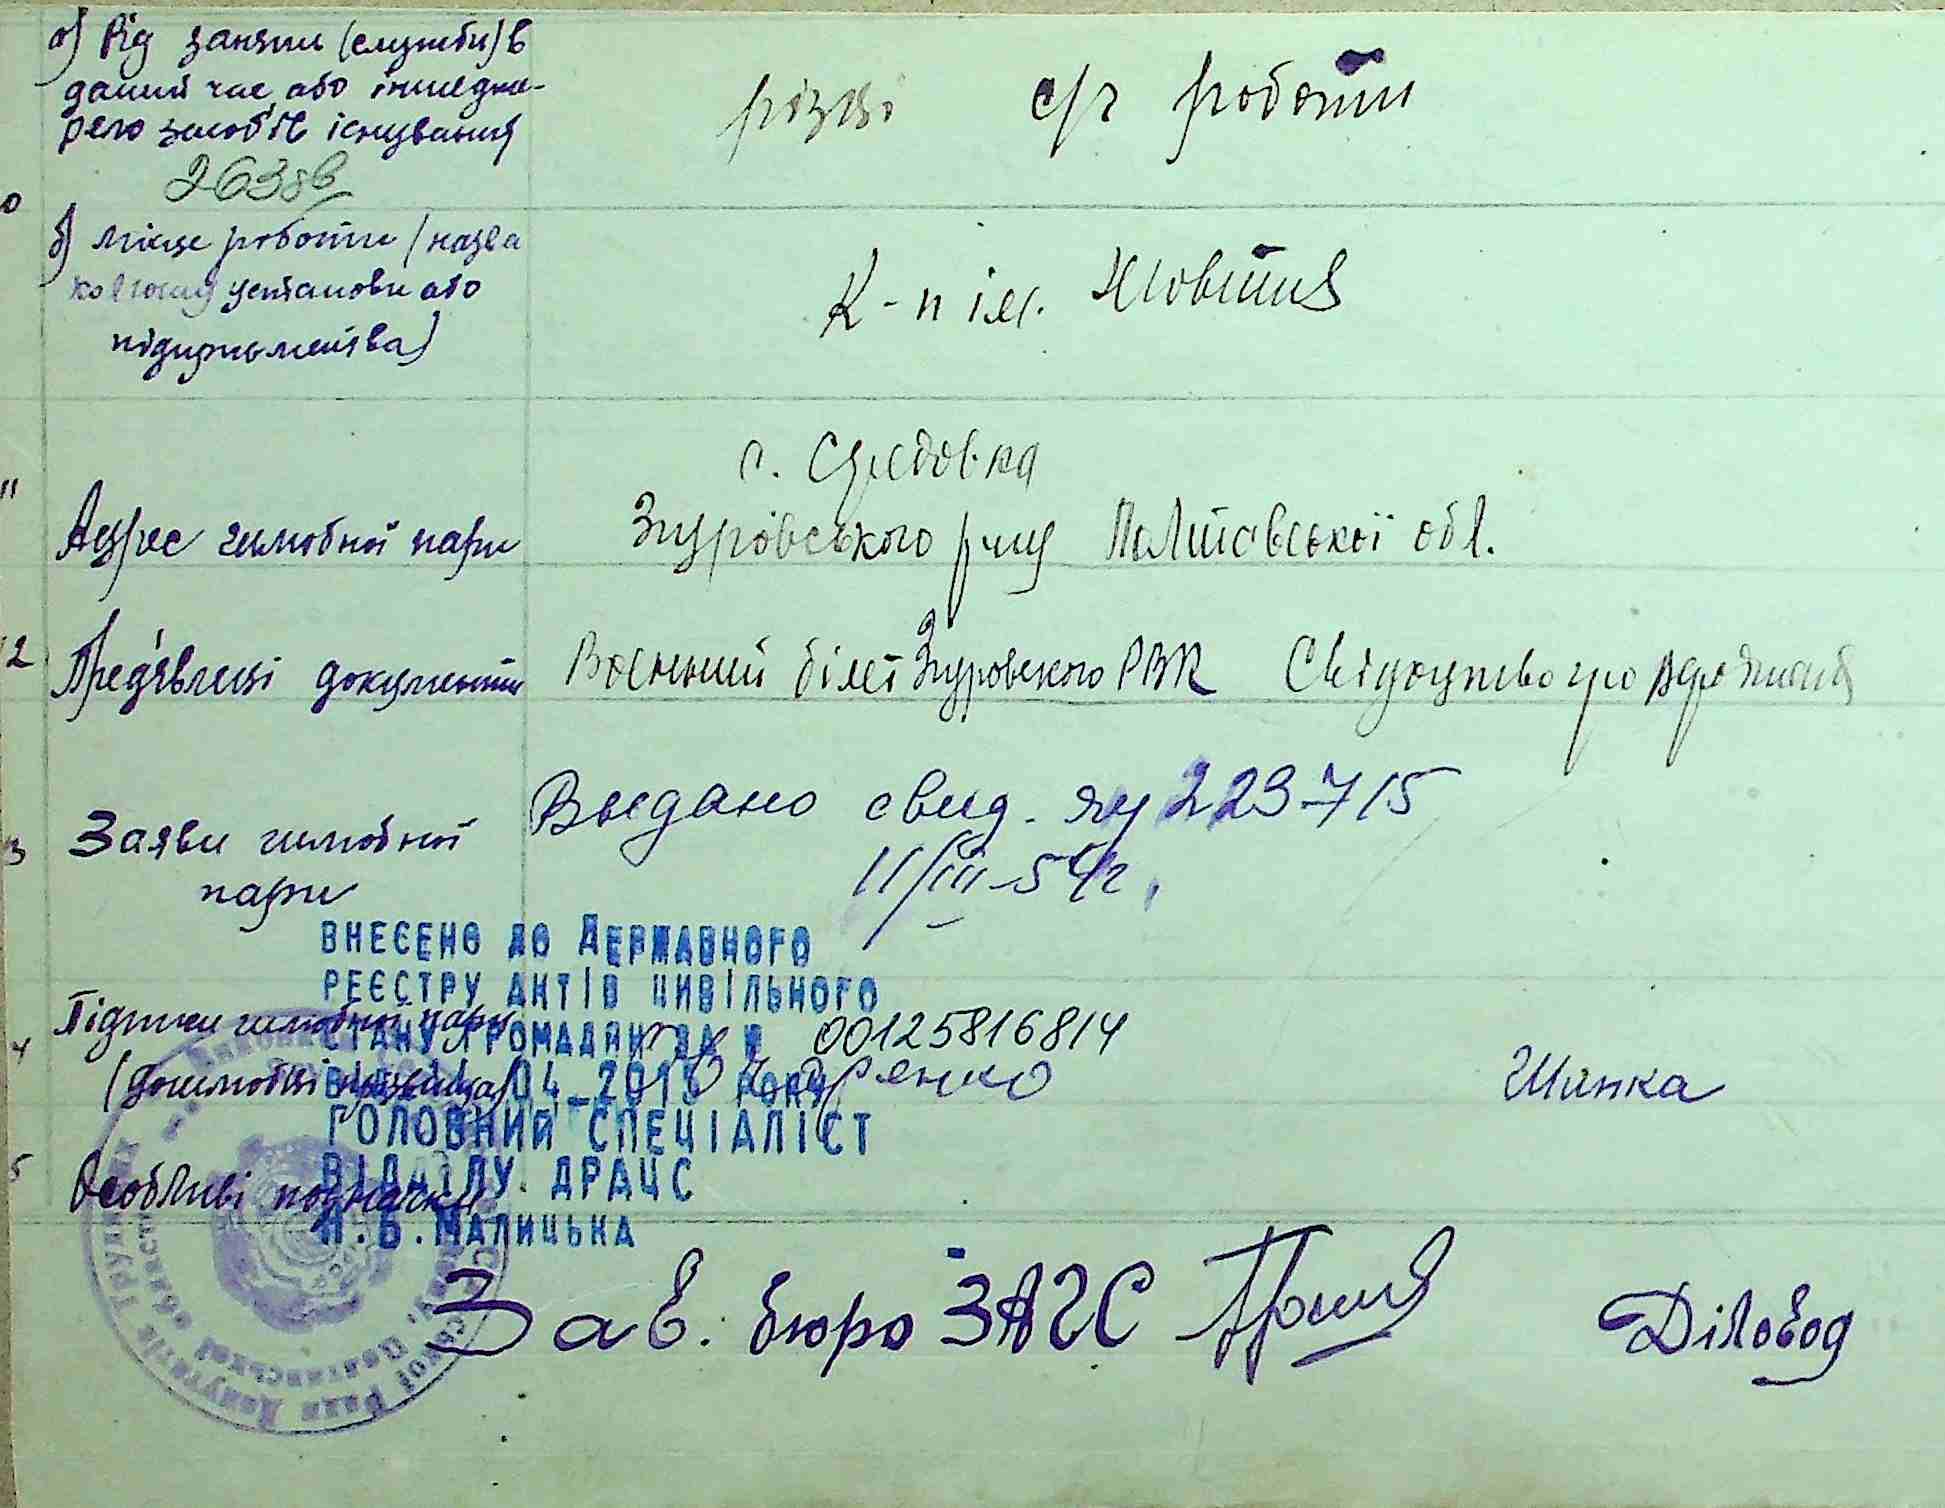 а) Рід заняти (служби) в
даний час або інше дже-
рело засобів існування
різні с/г роботи
2638в
б) місце роботи (назва
колгоспу установи або
підприємства)
К-п ім. Жовтня
с. Средовка
11 Адрес шлюбної пари
Згурівського р-ну Полтавської обл.
12 Пред'явлені документи
Воєнний білет Згуровского РВК Свідоцтво про
3 Заяви шлюбної
пари
Выдано свид. яу 223715
11/III-54г.
ВНЕСЕНО ДО ДЕРЖАВНОГО
РЕЄСТРУ АКТІВ ЦИВІЛЬНОГО
СТАНУ ГРОМАДЯН ЗА № 00125816814
04 2013 РОКУ
ГОЛОВНИЙ СПЕЦІАЛІСТ
ВІДДІЛУ ДРАЦС
МАЛИЦЬКА
4 Підписи шлюбної пари
(дошлюбні прізвища)
Шинка
5 Особливі познački
Зав. бюро ЗАГС
Діловод